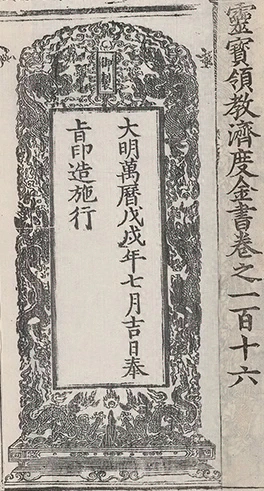 靈寶領教濟度金書卷之一百十六
御製
大明萬曆戊戌年七月吉日奉
旨印造施行